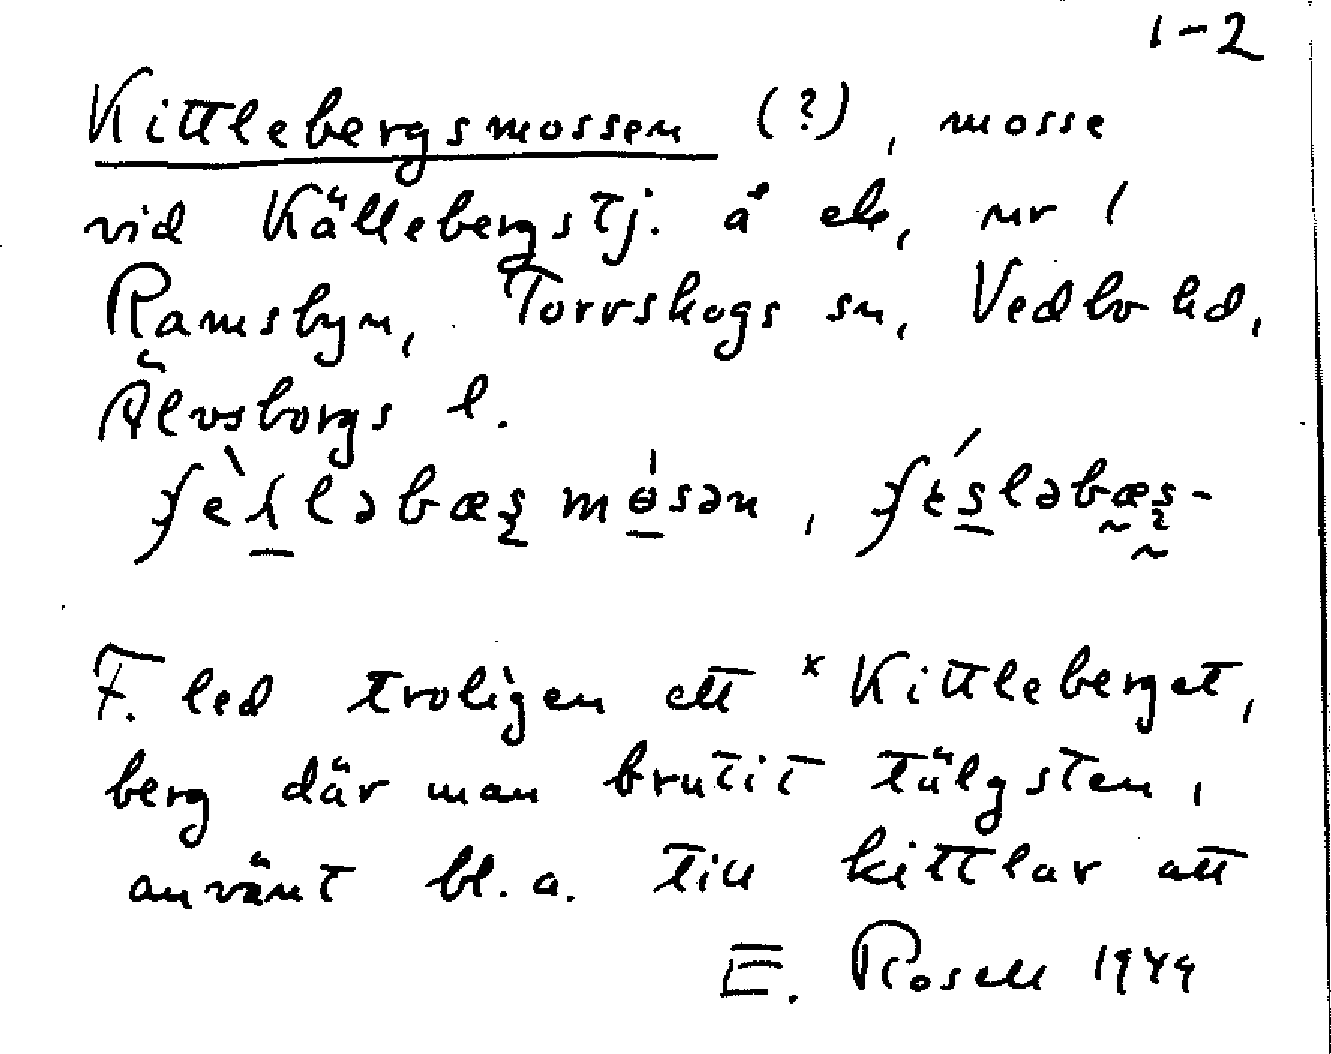 1-2
Kittlebergsmossen (?), mosse
vid Källebergstj. å ek, nr 1
Ramsbyn, Torrskogs sn, Vedbo hd,
Älvsborgs l.
F. led troligen ett *Kittleberget,
berg där man brutit tälgsten,
använt bl. a. till kittlar att
E. Rosell 1949